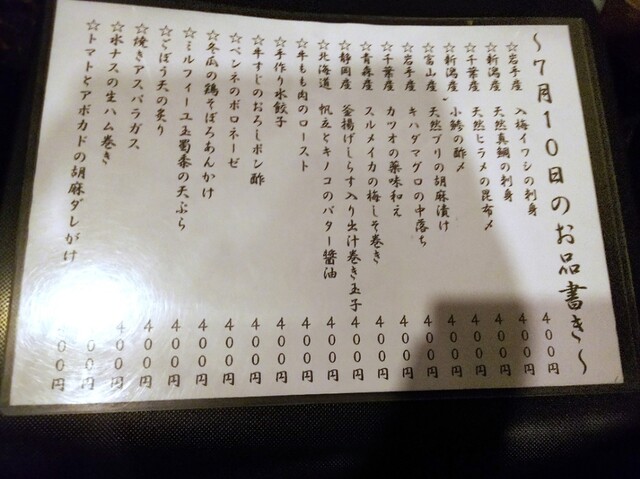 ～７月１０日のお品書き～
☆岩手産 入梅イワシの刺身 ４００円
☆新潟産 天然真鯛の刺身 ４００円
☆千葉産 天然ヒラメの昆布〆 ４００円
☆新潟産 小鯵の酢〆 ４００円
☆富山産 天然ブリの胡麻漬け ４００円
☆岩手産 キハダマグロの中落ち ４００円
☆千葉産 カツオの薬味和え ４００円
☆青森産 スルメイカの梅しそ巻き ４００円
☆静岡産 釜揚げしらす入り出汁巻き玉子 ４００円
☆北海道 帆立とキノコのバター醤油 ４００円
☆牛もも肉のロースト ４００円
☆手作り水餃子 ４００円
☆牛すじのおろしポン酢 ４００円
☆ペンネのボロネーゼ ４００円
☆冬瓜の鶏そぼろあんかけ ４００円
☆ミルフィーユ玉蜀黍の天ぷら ４００円
☆ごぼう天の炙り ４００円
☆焼きアスパラガス ４００円
☆水ナスの生ハム巻き ４００円
☆トマトとアボカドの胡麻ダレがけ ００円
００円